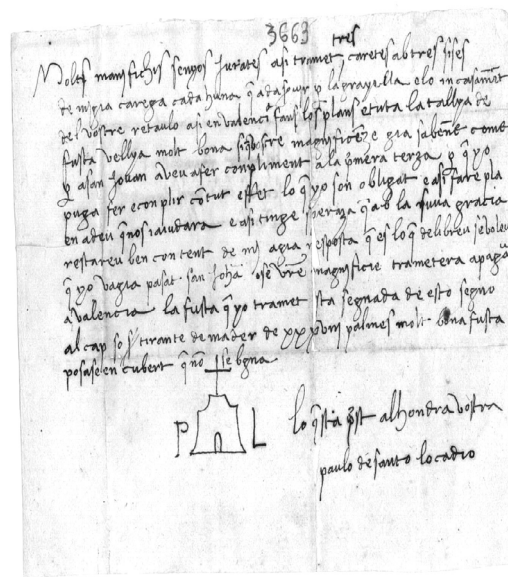 3669 tres
Molts magnifichs senyos jurates asi tramet caretes ab tres sises
de migia carega cada huna q̄ adaspux p la grayella e lo incasamēt
del vostre retaulo asi en valencia faus los plans e tuta la tallya de
fusta vellya molt bona si q̄ vostre magnificē e gia sabene come
p a san jouan aveu a fer conpliment a la pmera terza p q̄ yo
puga fer econplir cō tut effet lo q̄ yo son obligat e asi fare pla
en a deu q̄ nos iaiudara e asi tinge speraza q̄ ab la sua gracia
restareu ben content de mi agia resposta q̄ es lo q̄ delibreu se voleu
q̄ yo vagia pasat san johā o se vr̄e magnificie trametera a paga
a valencia la fusta q̄ yo tramet sta segnada de esto segno
al cap so tirante de mader de xxxvis palmes molt bona fusta
posase en cubert q̄ nō se bgna
P L
lo q̄ sta pst al hondra vostra
paulo de santo locadio